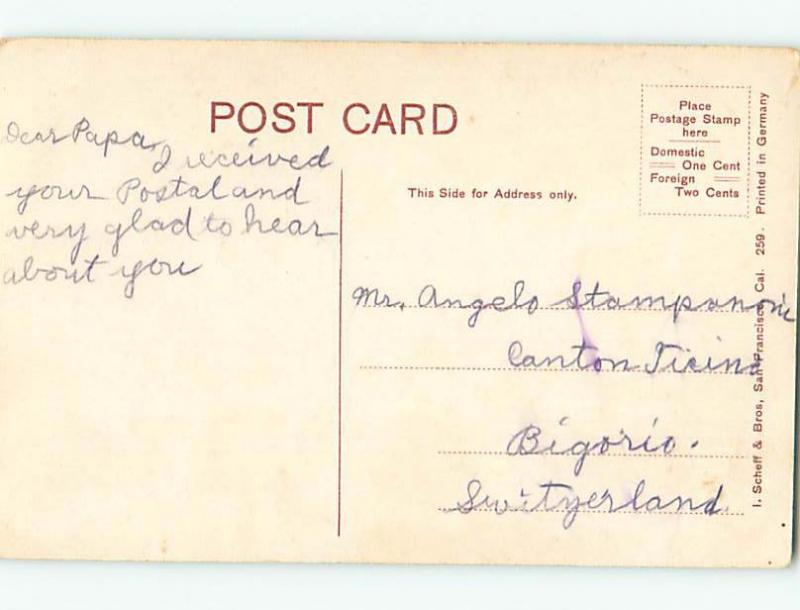 POST CARD
Dear Papa,
I received
your Postal and
very glad to hear
about you
This Side for Address only.
Place
Postage Stamp
here
Domestic
One Cent
Foreign
Two Cents
Mr. Angelo Stampanoni
Canton Ticino
Bigorio.
Switzerland.
I. Scheff & Bros, San Francisco, Cal. 259. Printed in Germany